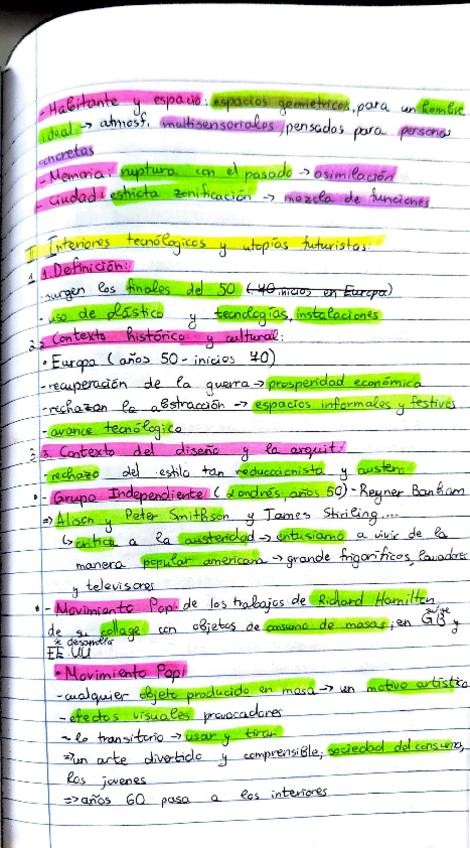 - Habitante y espacio: espacios geométricos, para un hombre
ideal → atmosf. multisensoriales, pensados para personas
concretas
- Memoria: ruptura con el pasado → asimilación
- Ciudad: estricta zonificación → mezcla de funciones
I Interiores tecnológicos y utopías futuristas:
1. Definición:
- surgen los finales del 50 (70 inicios en Europa)
- uso de plástico y tecnologías, instalaciones
2. Contexto histórico y cultural:
• Europa (años 50 - inicios 70)
- recuperación de la guerra → prosperidad económica
- rechazan la abstracción → espacios informales y festivos
- avance tecnológico
3. Contexto del diseño y la arquit:
rechazo del estilo tan reduccionista y austero
• Grupo Independiente (Londres, años 50) - Reyner Banham
⇒ Alison y Peter Smithson y James Stirling....
↳ critica a la austeridad → entusiamo a vivir de la
manera popular americana → grande frigoríficos, lavadores
y televisores
• - Movimiento Pop: de los trabajos de Richard Hamilton
de su collage con objetos de consumo de masas; en surge GB y
se desarrolla
EE.UU
• Movimiento Pop:
- cualquier objeto producido en masa → un motivo artístico
- efectos visuales provocadores
- lo transitorio → usar y tirar
⇒ un arte divertido y comprensible; sociedad del consumo,
los jovenes
⇒ años 60 pasa a los interiores